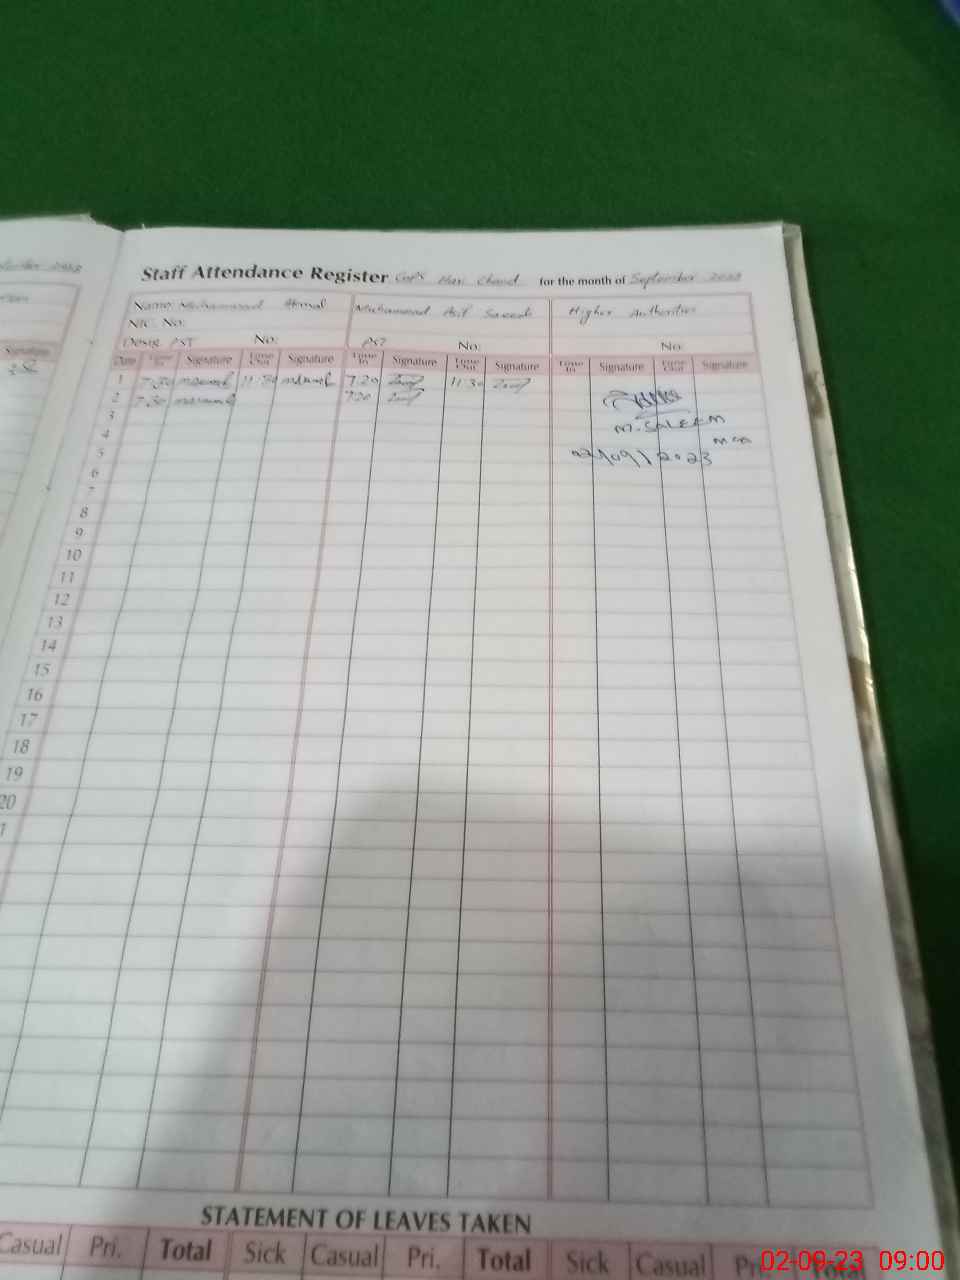 Staff Attendance Register GGPS Hari Chand for the month of September 2023
Name: Muhammad Ajmal Muhammad Asif Saeed Higher Authorities
NIC. No:
Desig. PST No: PST No: No:
Date Time In Signature Time Out Signature Time In Signature Time Out Signature Time In Signature Time Out Signature
1 7:30 11:30 7:20 11:30
2 7:30 7:20
3
M. SALEEM
4
MEA
5 02/09/2023
6
7
8
9
10
11
12
13
14
15
16
17
18
19
20
STATEMENT OF LEAVES TAKEN
Casual Pri. Total Sick Casual Pri. Total Sick Casual
02-09-23 09:00